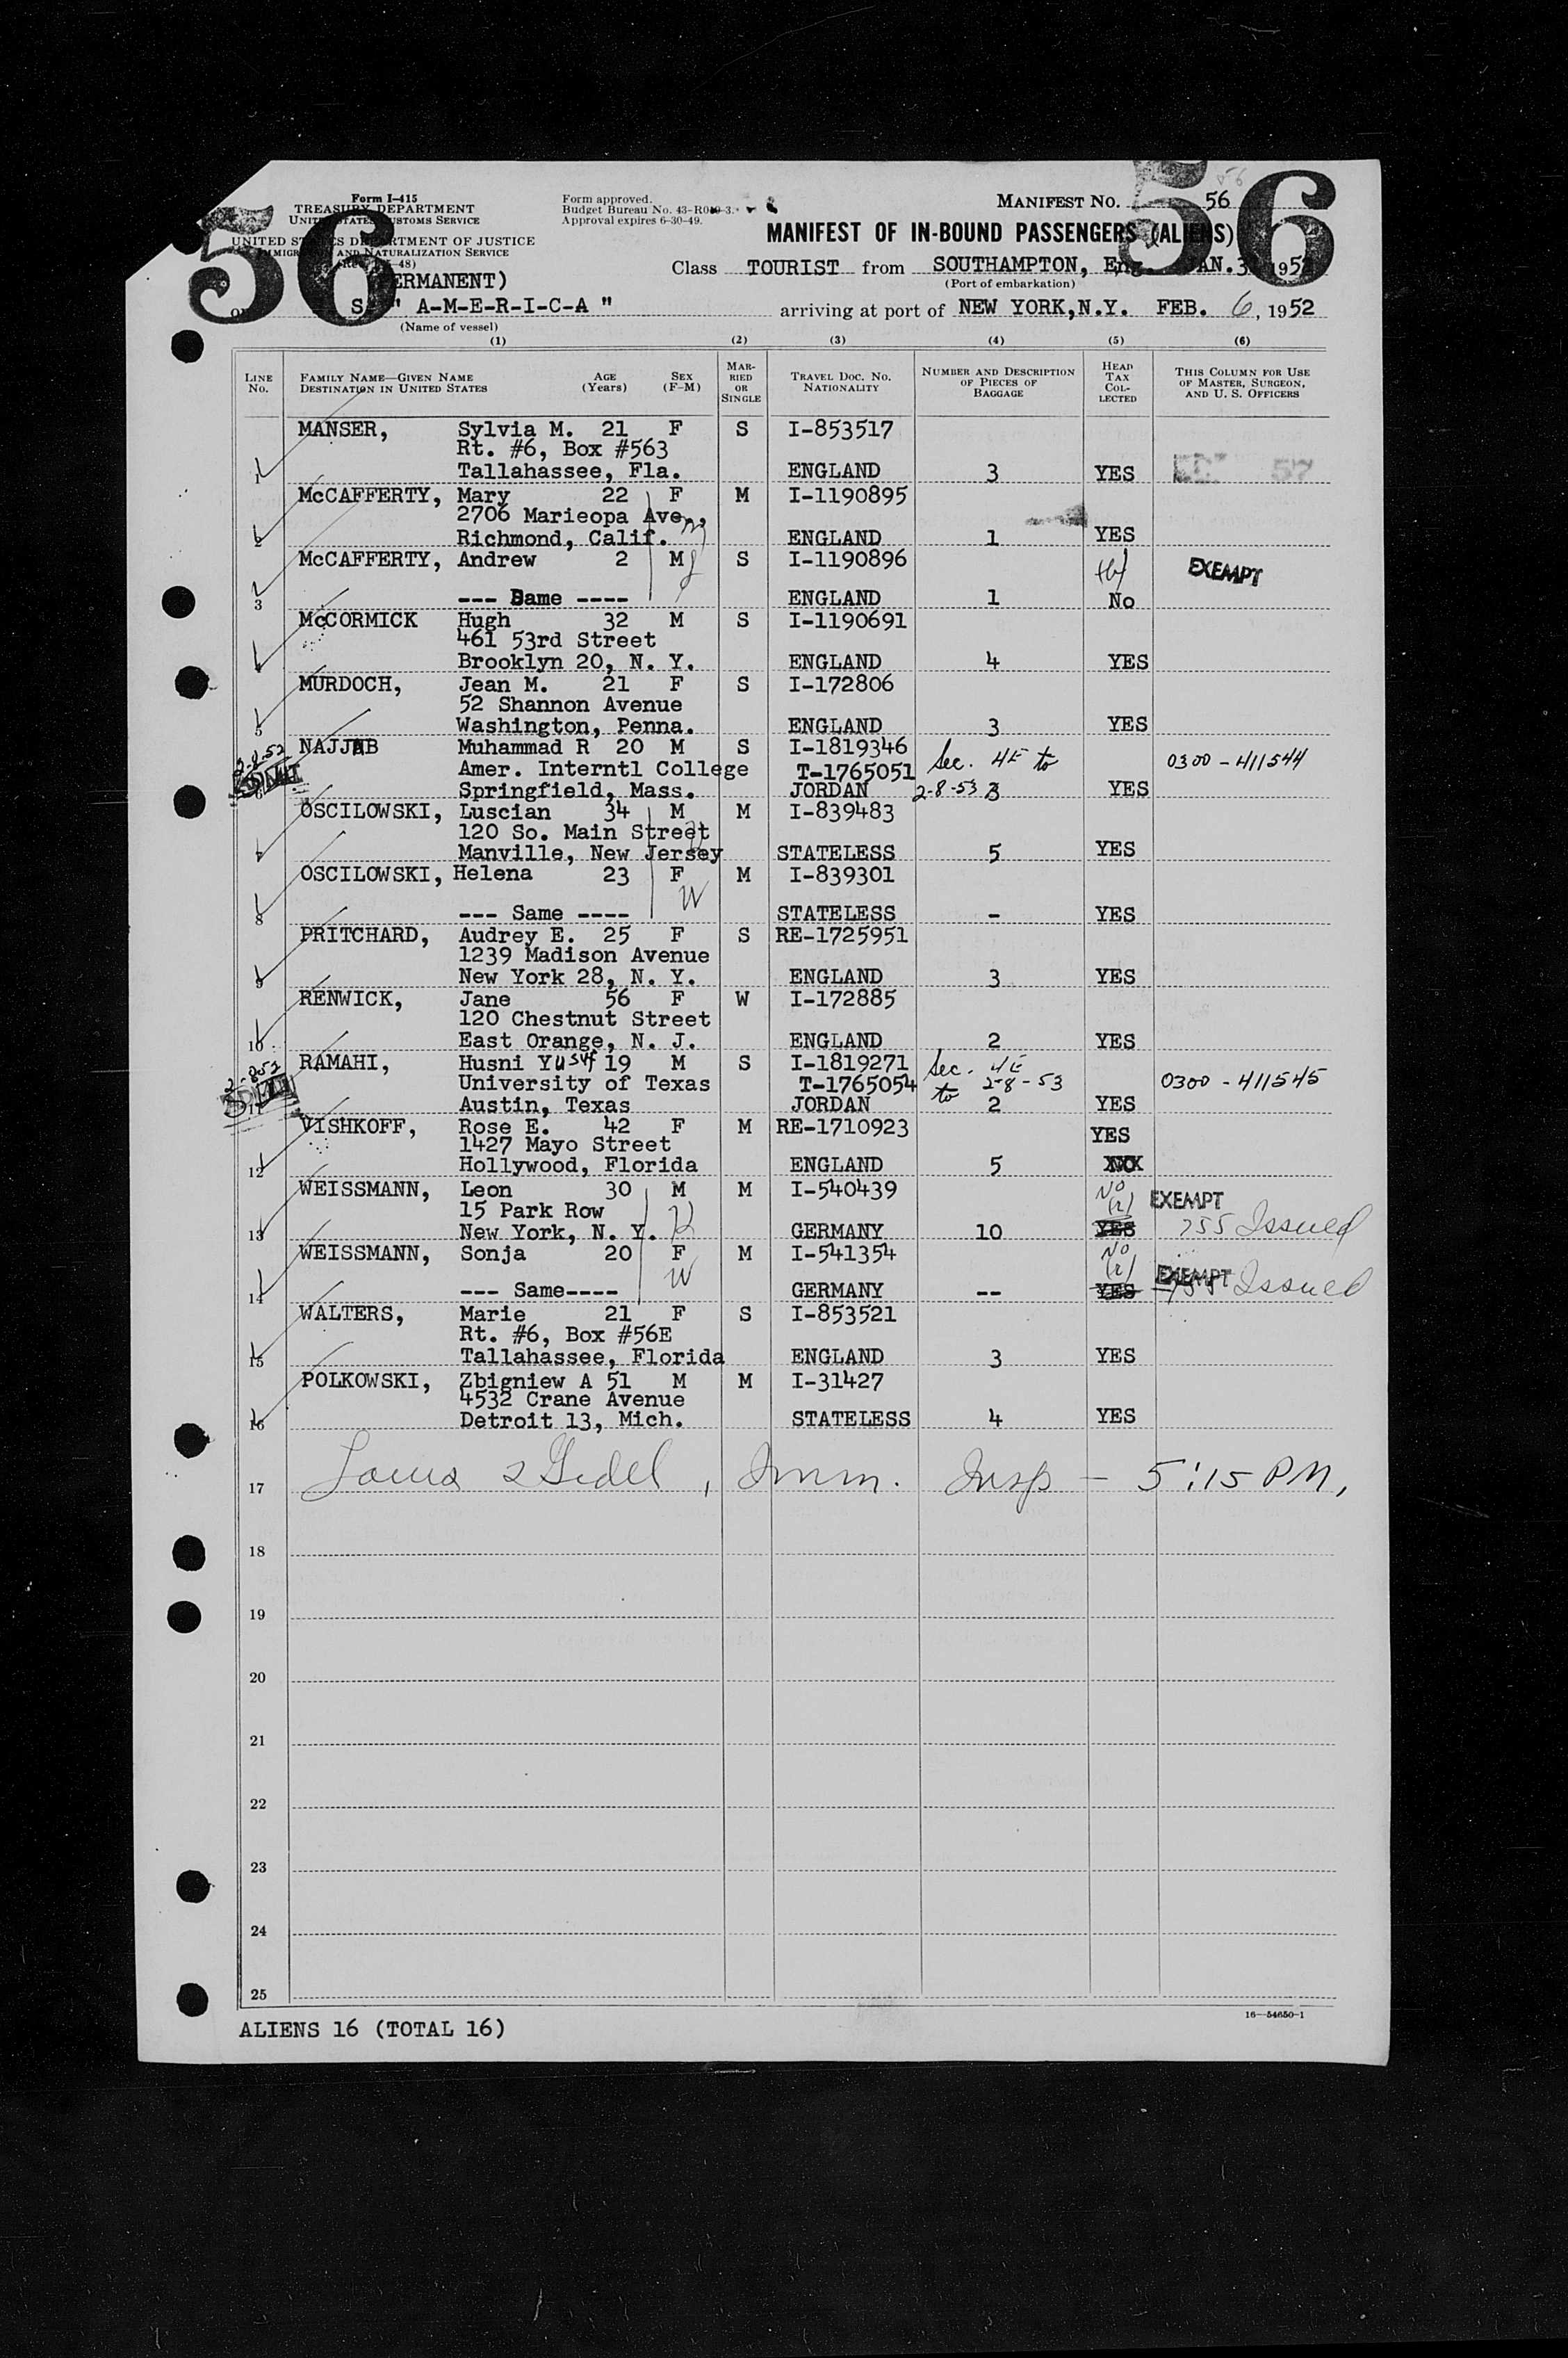 56
56
Form I-415
TREASURY DEPARTMENT
UNITED STATES CUSTOMS SERVICE
UNITED STATES DEPARTMENT OF JUSTICE
IMMIGRATION AND NATURALIZATION SERVICE
Form approved.
Budget Bureau No. 43-R0
Approval expires 6-30-49.
MANIFEST NO. 56
MANIFEST OF IN-BOUND PASSENGERS (ALIENS)
(PERMANENT)
Class TOURIST from SOUTHAMPTON, Eng. JAN. 1952
(Port of embarkation)
" A-M-E-R-I-C-A " arriving at port of NEW YORK, N.Y. FEB. 6, 1952
(Name of vessel)
(1) (2) (3) (4) (5) (6)
LINE No. FAMILY NAME—GIVEN NAME DESTINATION IN UNITED STATES AGE (Years) SEX (F-M) MARRIED OR SINGLE TRAVEL DOC. NO. NATIONALITY NUMBER AND DESCRIPTION OF PIECES OF BAGGAGE HEAD TAX COLLECTED THIS COLUMN FOR USE OF MASTER, SURGEON, AND U. S. OFFICERS
MANSER, Sylvia M. 21 F S I-853517
Rt. #6, Box #563
1 Tallahassee, Fla. ENGLAND 3 YES 57
McCAFFERTY, Mary 22 F M I-1190895
2706 Marieopa Ave.,
2 Richmond, Calif. ENGLAND 1 YES
McCAFFERTY, Andrew 2 M S I-1190896 EXEMPT
3 --- Same ---- ENGLAND 1 No
McCORMICK Hugh 32 M S I-1190691
461 53rd Street
4 Brooklyn 20, N. Y. ENGLAND 4 YES
MURDOCH, Jean M. 21 F S I-172806
52 Shannon Avenue
5 Washington, Penna. ENGLAND 3 YES
2-8-52 NAJJAB Muhammad R 20 M S I-1819346
Amer. Interntl College T-1765051 Sec. 4E to 0300-411544
6 Springfield, Mass. JORDAN 2-8-53 3 YES
OSCILOWSKI, Luscian 34 M M I-839483
120 So. Main Street
7 Manville, New Jersey STATELESS 5 YES
OSCILOWSKI, Helena 23 F M I-839301
W
8 --- Same ---- STATELESS - YES
PRITCHARD, Audrey E. 25 F S RE-1725951
1239 Madison Avenue
9 New York 28, N. Y. ENGLAND 3 YES
RENWICK, Jane 56 F W I-172885
120 Chestnut Street
10 East Orange, N. J. ENGLAND 2 YES
RAMAHI, Husni Yusuf 19 M S I-1819271 Sec. 4E
University of Texas T-1765054 to 2-8-53 0300-411545
11 Austin, Texas JORDAN 2 YES
VISHKOFF, Rose E. 42 F M RE-1710923 YES
1427 Mayo Street
12 Hollywood, Florida ENGLAND 5
WEISSMANN, Leon 30 M M I-540439 No EXEMPT
15 Park Row H (r)
13 New York, N. Y. GERMANY 10 YES 755 Issued
WEISSMANN, Sonja 20 F M I-541354 No
W (r) EXEMPT
14 --- Same---- GERMANY -- YES 755 Issued
WALTERS, Marie 21 F S I-853521
Rt. #6, Box #56E
15 Tallahassee, Florida ENGLAND 3 YES
POLKOWSKI, Zbigniew A 51 M M I-31427
4532 Crane Avenue
16 Detroit 13, Mich. STATELESS 4 YES
17 Imm. Insp - 5:15 PM,
18
19
20
21
22
23
24
25
ALIENS 16 (TOTAL 16)
16—54650-1